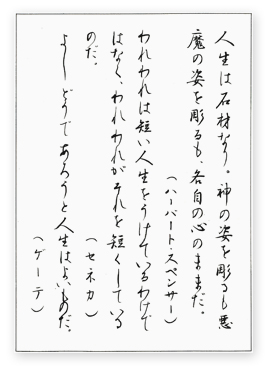 人生は石材なり。神の姿を彫るも悪
魔の姿を彫るも、各自の心のままだ。
（ハーバート・スペンサー）
われわれは短い人生をうけているわけで
はなく、われわれがそれを短くしている
のだ。
（セネカ）
よしどうであろうと人生はよいものだ。
（ゲーテ）